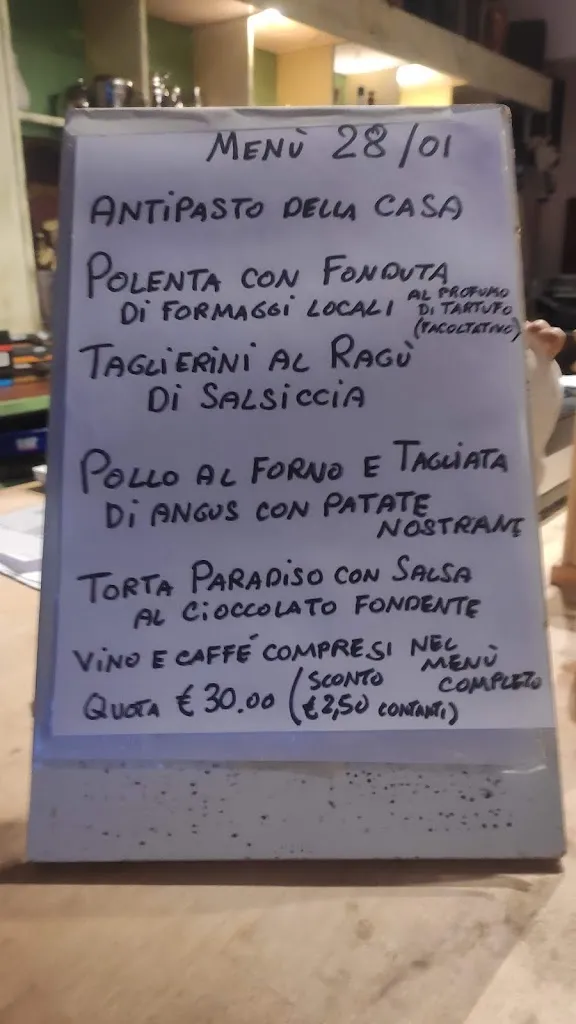 MENÙ 28/01
ANTIPASTO DELLA CASA
POLENTA CON FONDUTA
DI FORMAGGI LOCALI AL PROFUMO
DI TARTUFO
(FACOLTATIVO)
TAGLIERINI AL RAGÙ
DI SALSICCIA
POLLO AL FORNO E TAGLIATA
DI ANGUS CON PATATE
NOSTRANE
TORTA PARADISO CON SALSA
AL CIOCCOLATO FONDENTE
VINO E CAFFÉ COMPRESI NEL
MENÙ
COMPLETO
QUOTA € 30.00 (SCONTO
€2,50 CONTANTI)